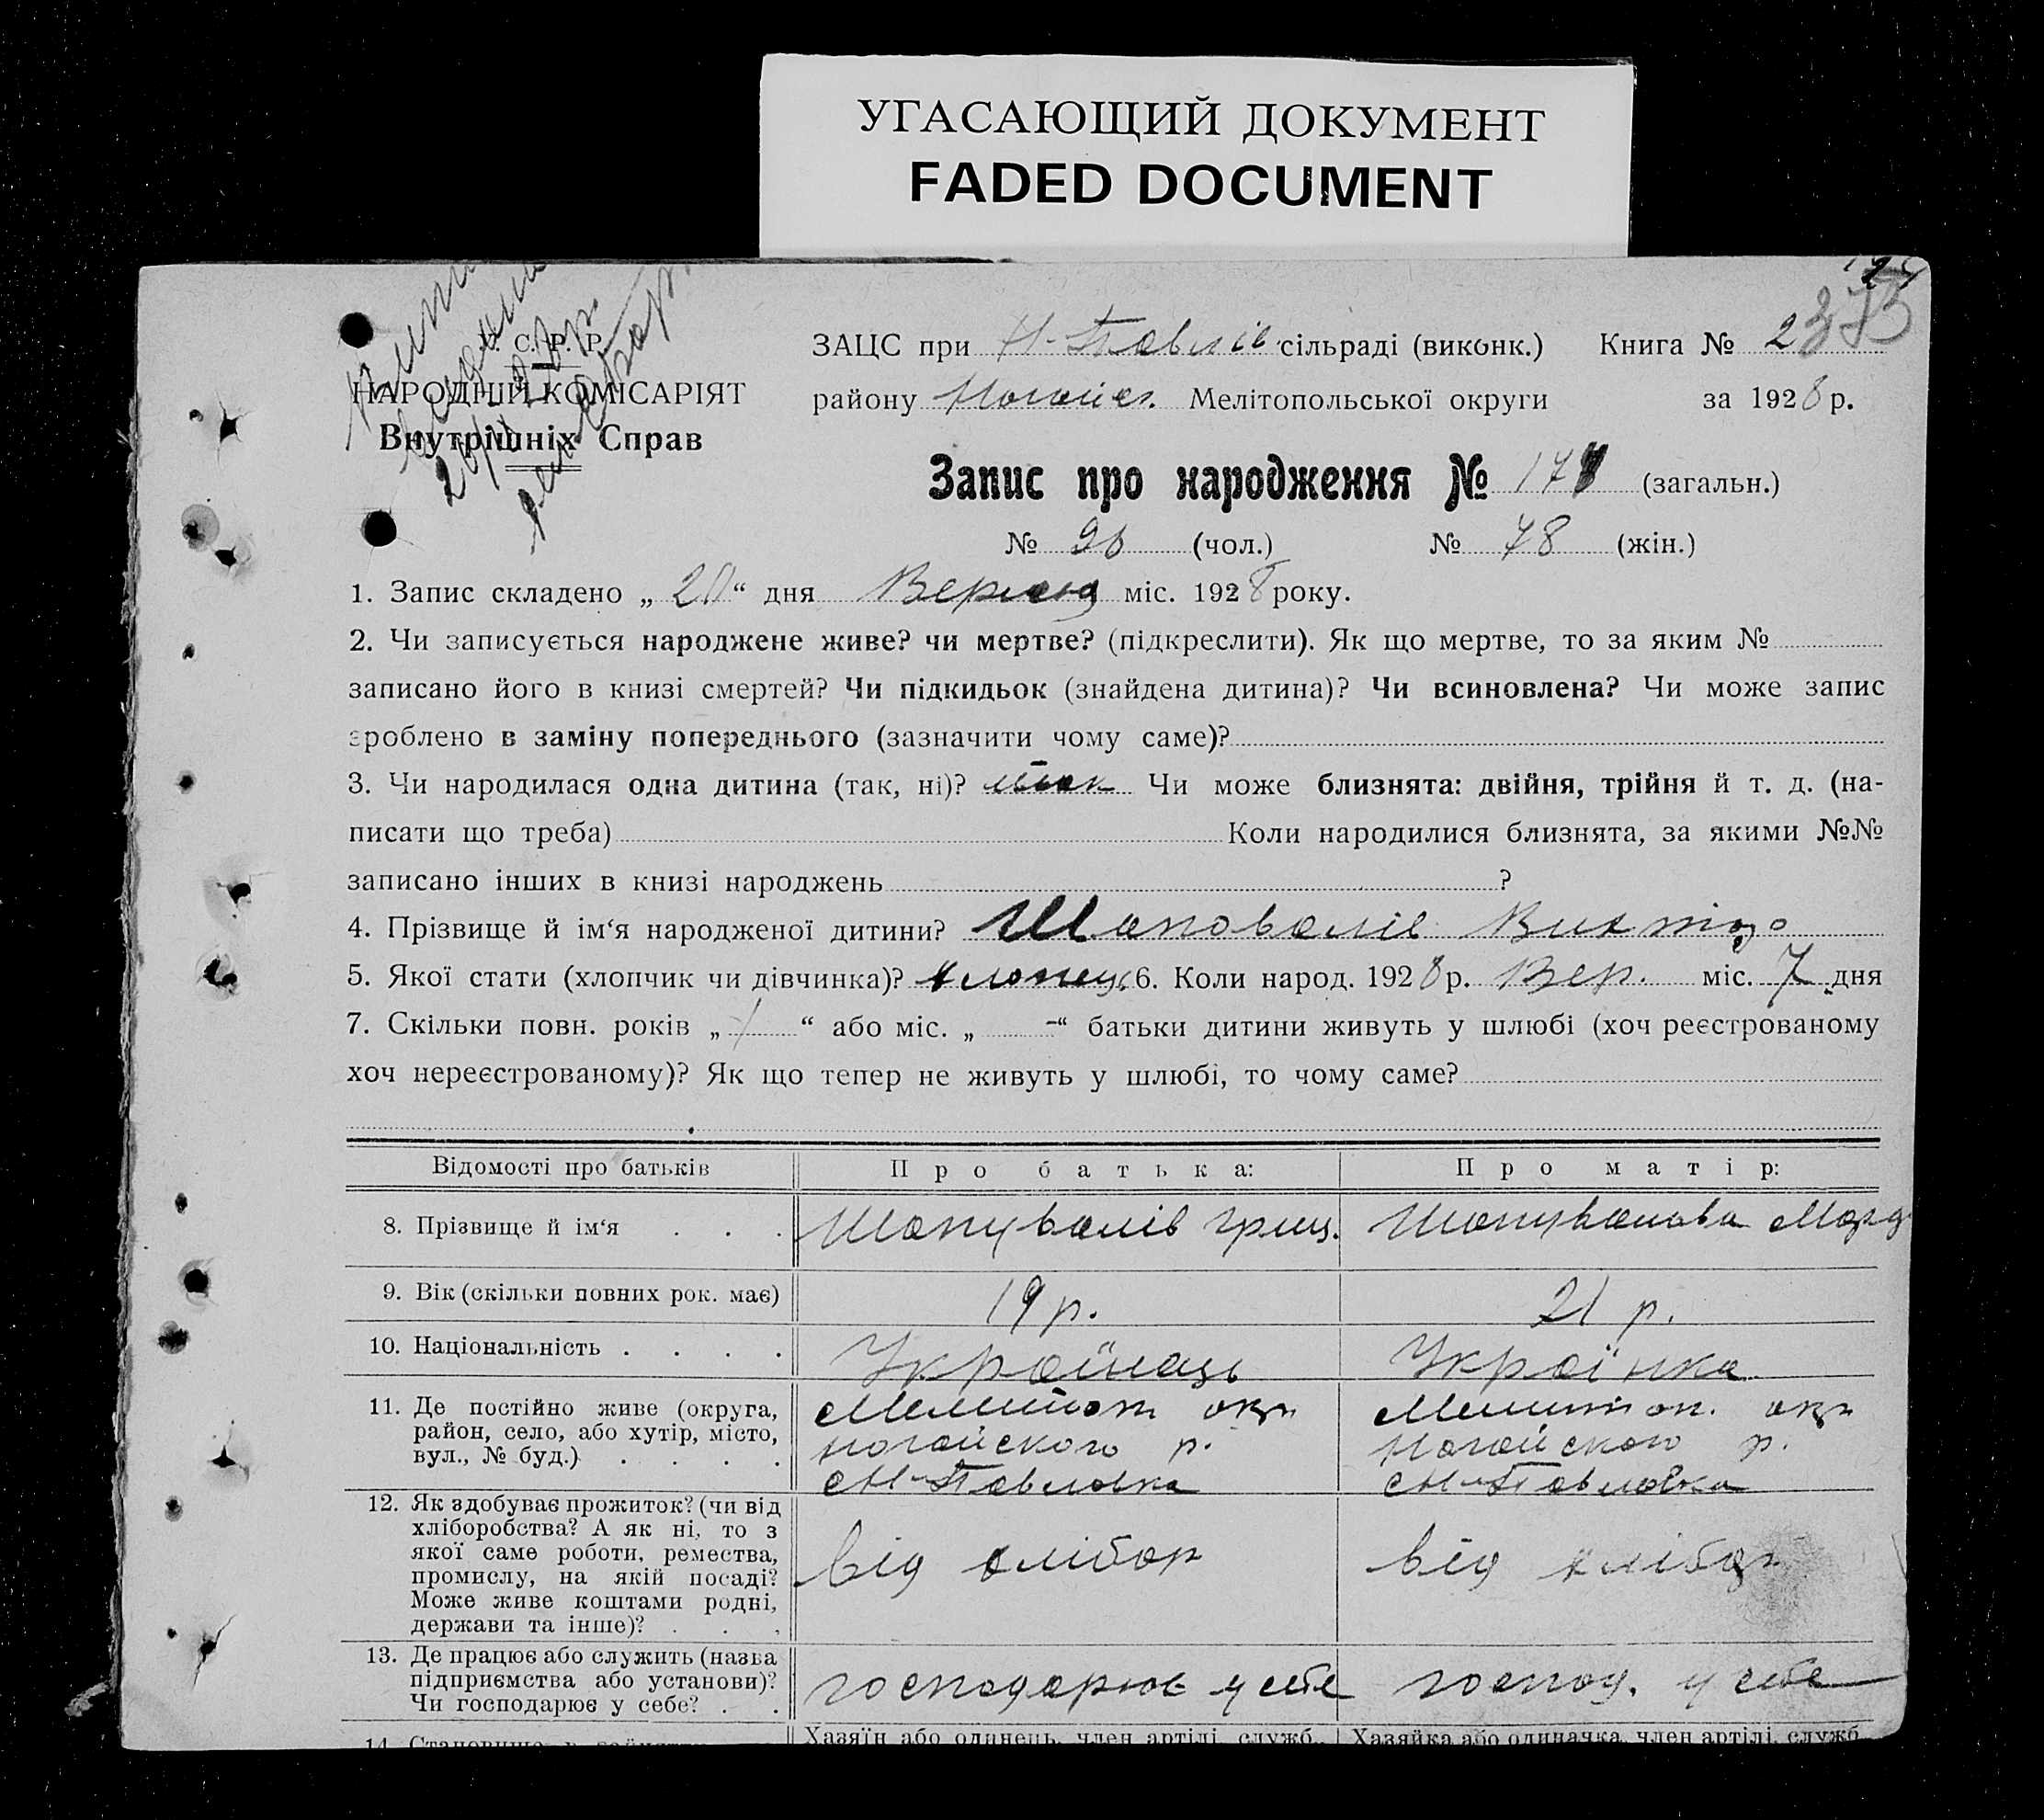 УГАСАЮЩИЙ ДОКУМЕНТ
FADED DOCUMENT
С. Р. Р.
НАРОДНІЙ КОМІСАРІЯТ
Внутрішніх Справ
ЗАЦС при Н-Павлів сільраді (виконк.) Книга № 2
району Ногайс. Мелітопольської округи за 1928 р.
Запис про народження № 17 (загальн.)
№ 96 (чол.) № 78 (жін.)
1. Запис складено „20“ дня Вересня міс. 1928 року.
2. Чи записується народжене живе? чи мертве? (підкреслити). Як що мертве, то за яким №
записано його в книзі смертей? Чи підкидьок (знайдена дитина)? Чи всиновлена? Чи може запис
зроблено в заміну попереднього (зазначити чому саме)?
3. Чи народилася одна дитина (так, ні)? так Чи може близнята: двійня, трійня й т. д. (на-
писати що треба) Коли народилися близнята, за якими №№
записано інших в книзі народжень ?
4. Прізвище й ім‘я народженої дитини? Шаповалів Виктор
5. Якої стати (хлопчик чи дівчинка)? хлопець 6. Коли народ. 1928 р. Вер. міс. 7 дня
7. Скільки повн. років „1“ або міс. „-“ батьки дитини живуть у шлюбі (хоч реєстрованому
хоч нереєстрованому)? Як що тепер не живуть у шлюбі, то чому саме?
Відомості про батьків Про батька: Про матір:
8. Прізвище й ім‘я . . . Шапувалів Гриц. Шапувалова
9. Вік (скільки повних рок. має) 19 р. 21 р.
10. Національність . . . . Українець Українка
11. Де постійно живе (округа, Мелитоп. окр Мелитоп. окр
район, село, або хутір, місто, Ногайского р. Ногайского р.
вул., № буд.) . . . . с Н-Павловка с Н-Павловка
12. Як здобуває прожиток? (чи від
хліборобства? А як ні, то з
якої саме роботи, ремества, від хлібор від хлібор
промислу, на якій посаді?
Може живе коштами родні,
держави та інше)? . . .
13. Де працює або служить (назва
підприємства або установи)? господарює у себе господ. у себе
Чи господарює у себе? . .
Хазяїн або одинець, член артілі, служб. Хазяйка або одиначка, член артілі, служб.